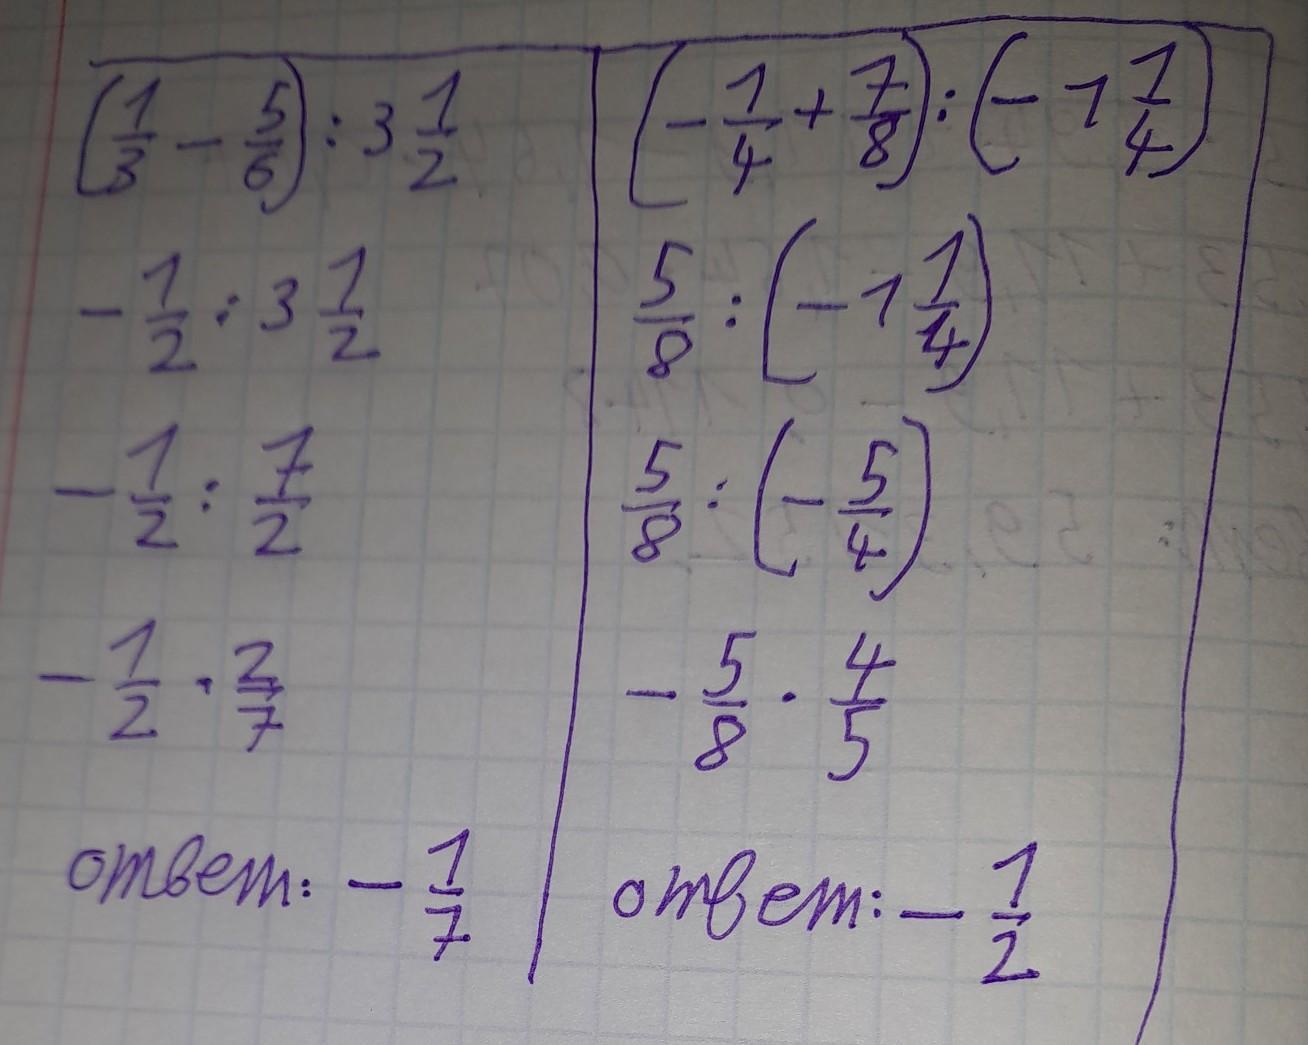 (1/3 - 5/6) : 3 1/2
- 1/2 : 3 1/2
- 1/2 : 7/2
- 1/2 · 2/7
ответ: - 1/7
(- 1/4 + 7/8) : (- 1 1/4)
5/8 : (- 1 1/4)
5/8 : (- 5/4)
- 5/8 · 4/5
ответ: - 1/2